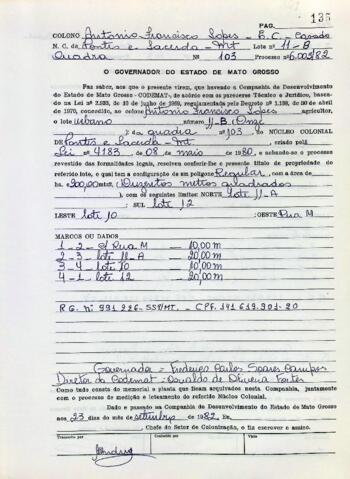 PAG. 135
COLONO Antonio Francisco Lopes - E.C. - Casado
N. C. de Pontes e Lacerda - Mt Lote nº 11-B
Quadra Nº 103 Processo nº 6.002/82
O GOVERNADOR DO ESTADO DE MATO GROSSO
Faz saber, aos que o presente virem, que havendo a Companhia de Desenvolvimento
do Estado de Mato Grosso - CODEMAT, de acôrdo com os pareceres Técnico e Jurídico, basea-
do na Lei nº 2.933, de 10 de junho de 1969, regulamentada pelo Decreto nº 1.138, de 30 de abril
de 1970, concedido, ao colono Antonio Francisco Lopes agricultor,
o lote urbano número 11-B (Onze
B) da quadra nº 103, do NÚCLEO COLONIAL
DE Pontes e Lacerda - Mt, criado pela
Lei nº 4183, de 08 de maio de 1980, e achando-se o processo
revestido das formalidades legais, resolveu conferir-lhe o presente título de propriedade do
referido lote, o qual tem a configuração de um polígono Regular, com a área de
ha. 200,00 mts² (Duzentos metros quadrados
), com os seguintes limites: NORTE Lote 11-A
; SUL lote 12
LESTE lote 10 ; OESTE Rua M
MARCOS OU DADOS
1 - 2 - à Rua M — 10,00 m
2 - 3 - lote 11-A — 20,00 m
3 - 4 - lote 10 — 10,00 m
4 - 1 - lote 12 — 20,00 m
RG. nº 991.226-SSP/MT. - CPF. 141.619.901-20
Governador = Frederico Carlos Soares Campos
Diretor da Codemat: Osvaldo de Oliveira Fortes
Como tudo consta do memorial e planta que ficam arquivados nesta Companhia, juntamente
com o processo de medição e loteamento do referido Núcleo Colonial.
Dado e passado na Companhia de Desenvolvimento do Estado de Mato Grosso
aos 23 dias do mês de setembro de 1982. Eu
, Chefe do Setor de Colonização, o fiz escrever e assino.
Transcrito por
Conferido por
Visto